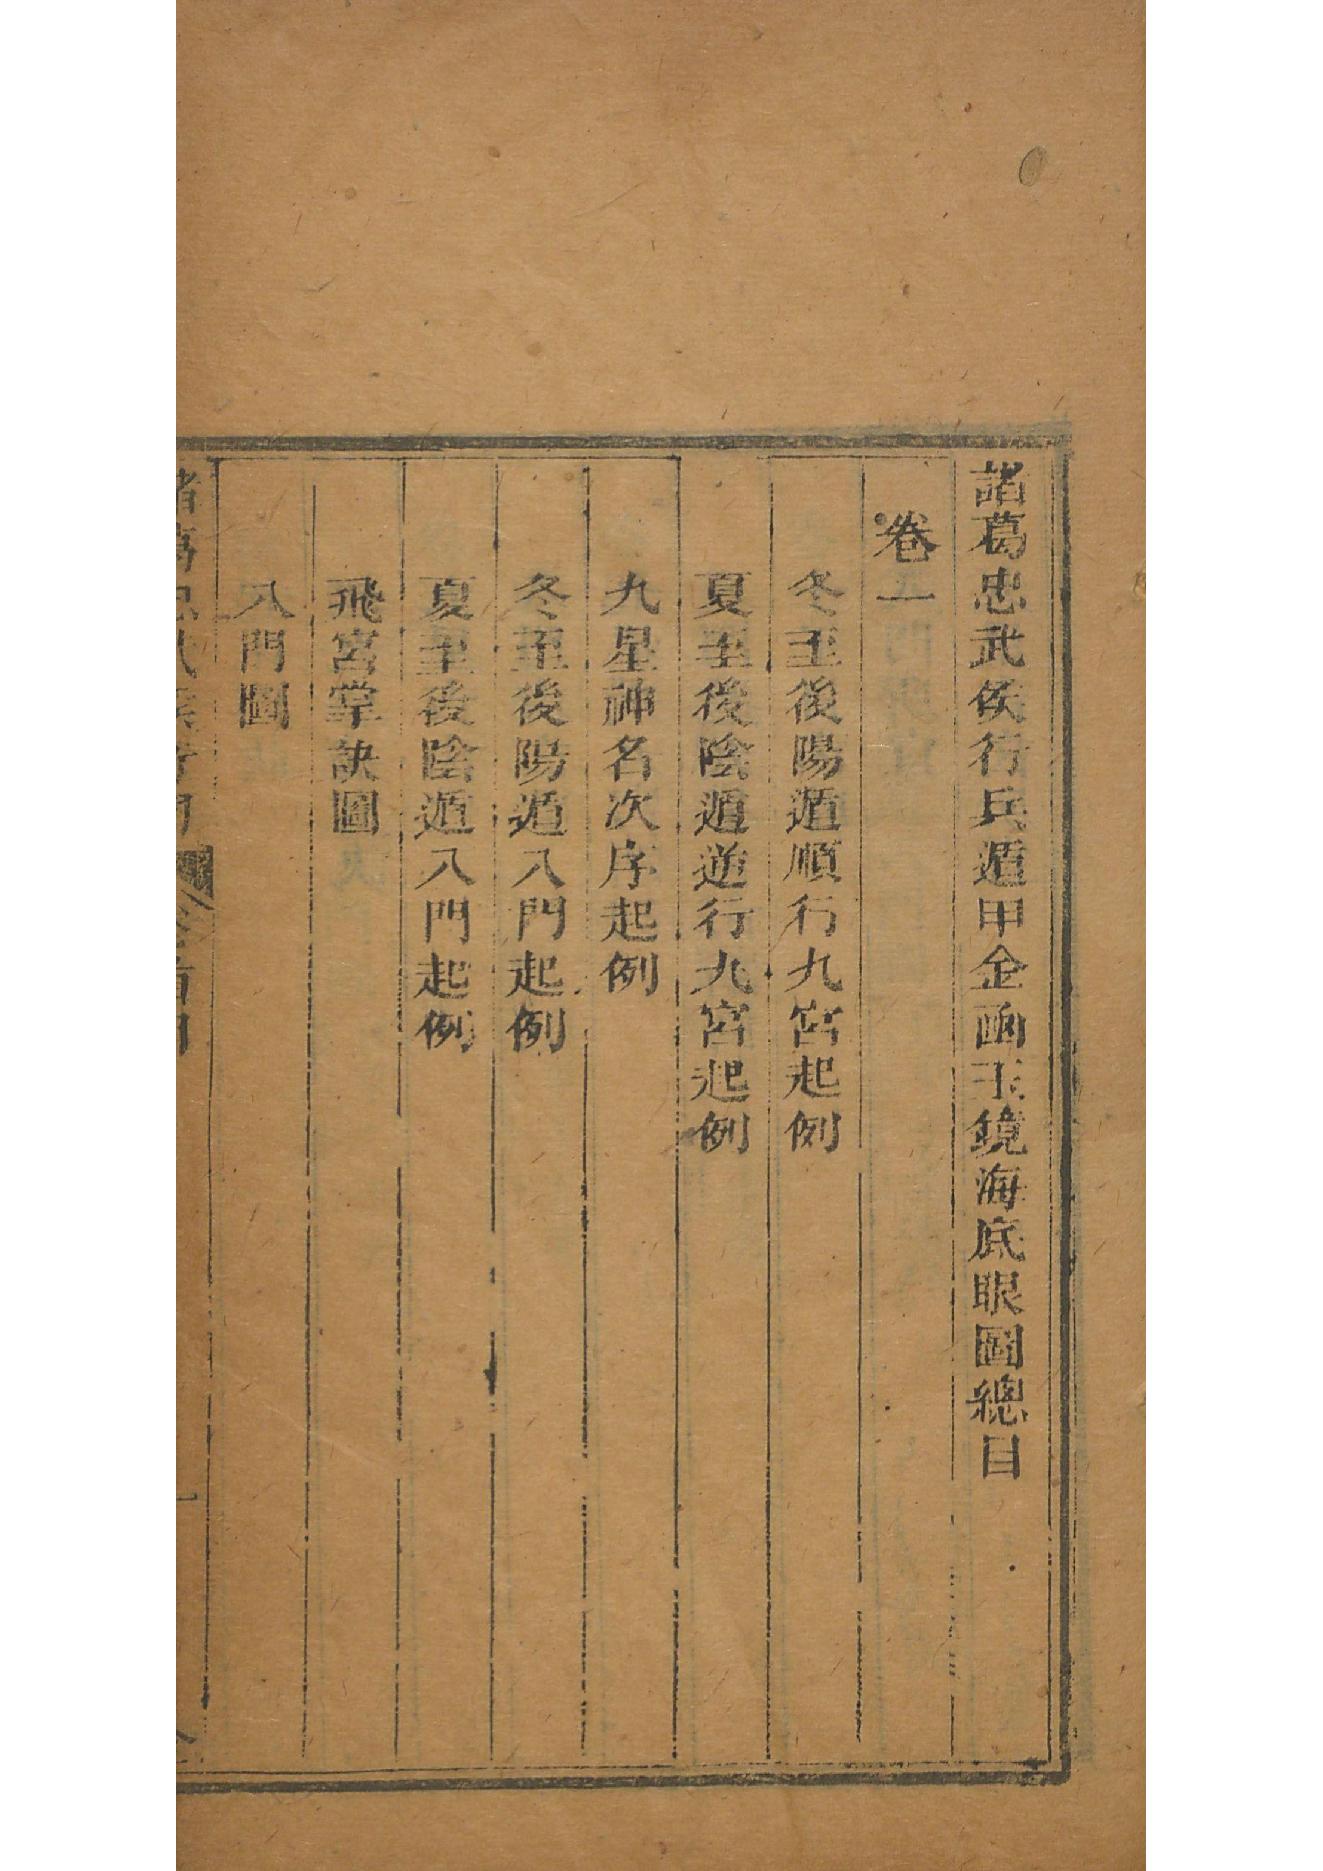 諸葛忠武侯行兵遁甲金函玉鏡海底眼圖總目
卷一
冬至後陽遁順行九宮起例
夏至後陰遁逆行九宮起例
九星神名次序起例
冬至後陽遁八門起例
夏至後陰遁八門起例
飛宮掌訣圖
八門圖